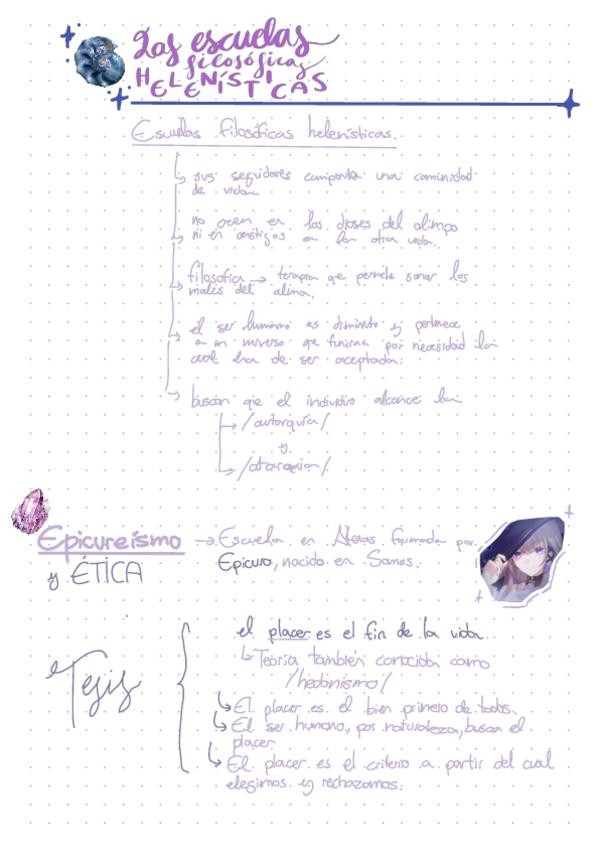 Las escuelas
filosóficas
HELENÍSTICAS
Escuelas filosóficas helenísticas.
sus seguidores comparten una comunidad
de vida
no creen en los dioses del olimpo
ni en castigos en la otra vida.
filosofía → terapia que permite sanar los
males del alma.
el ser humano es diminuto y pertenece
a un universo que funciona por necesidad la
cual ha de ser aceptada.
buscan que el individuo alcance la
/autarquía/
y
/ataraxia/
Epicureísmo → Escuela en Atenas formada por
y ÉTICA Epicuro, nacido en Samos.
Tesis
el placer es el fin de la vida
Teoría también conocida como
/hedonismo/
El placer es el bien primero de todos.
El ser humano, por naturaleza, busca el
placer
El placer es el criterio a partir del cual
elegimos y rechazamos.